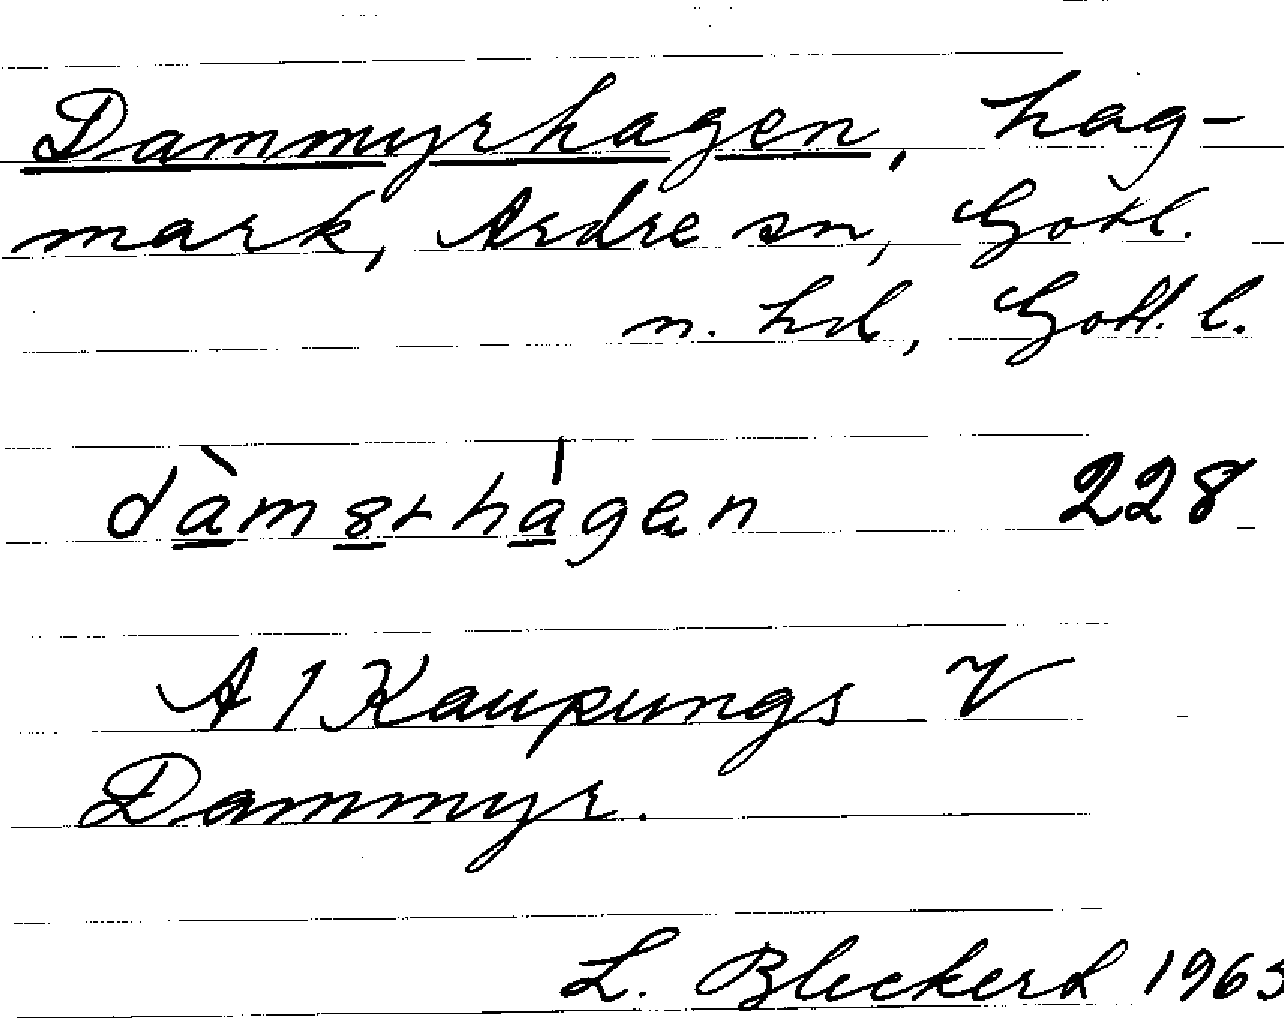 Dammyrhagen, hag-
mark, Ardre sn, Gotl.
n. hd, Gotl. l.
dàm8rhàgen 228
A 1 Kaupungs V
Dammyr.
L. Bleckerd 1963